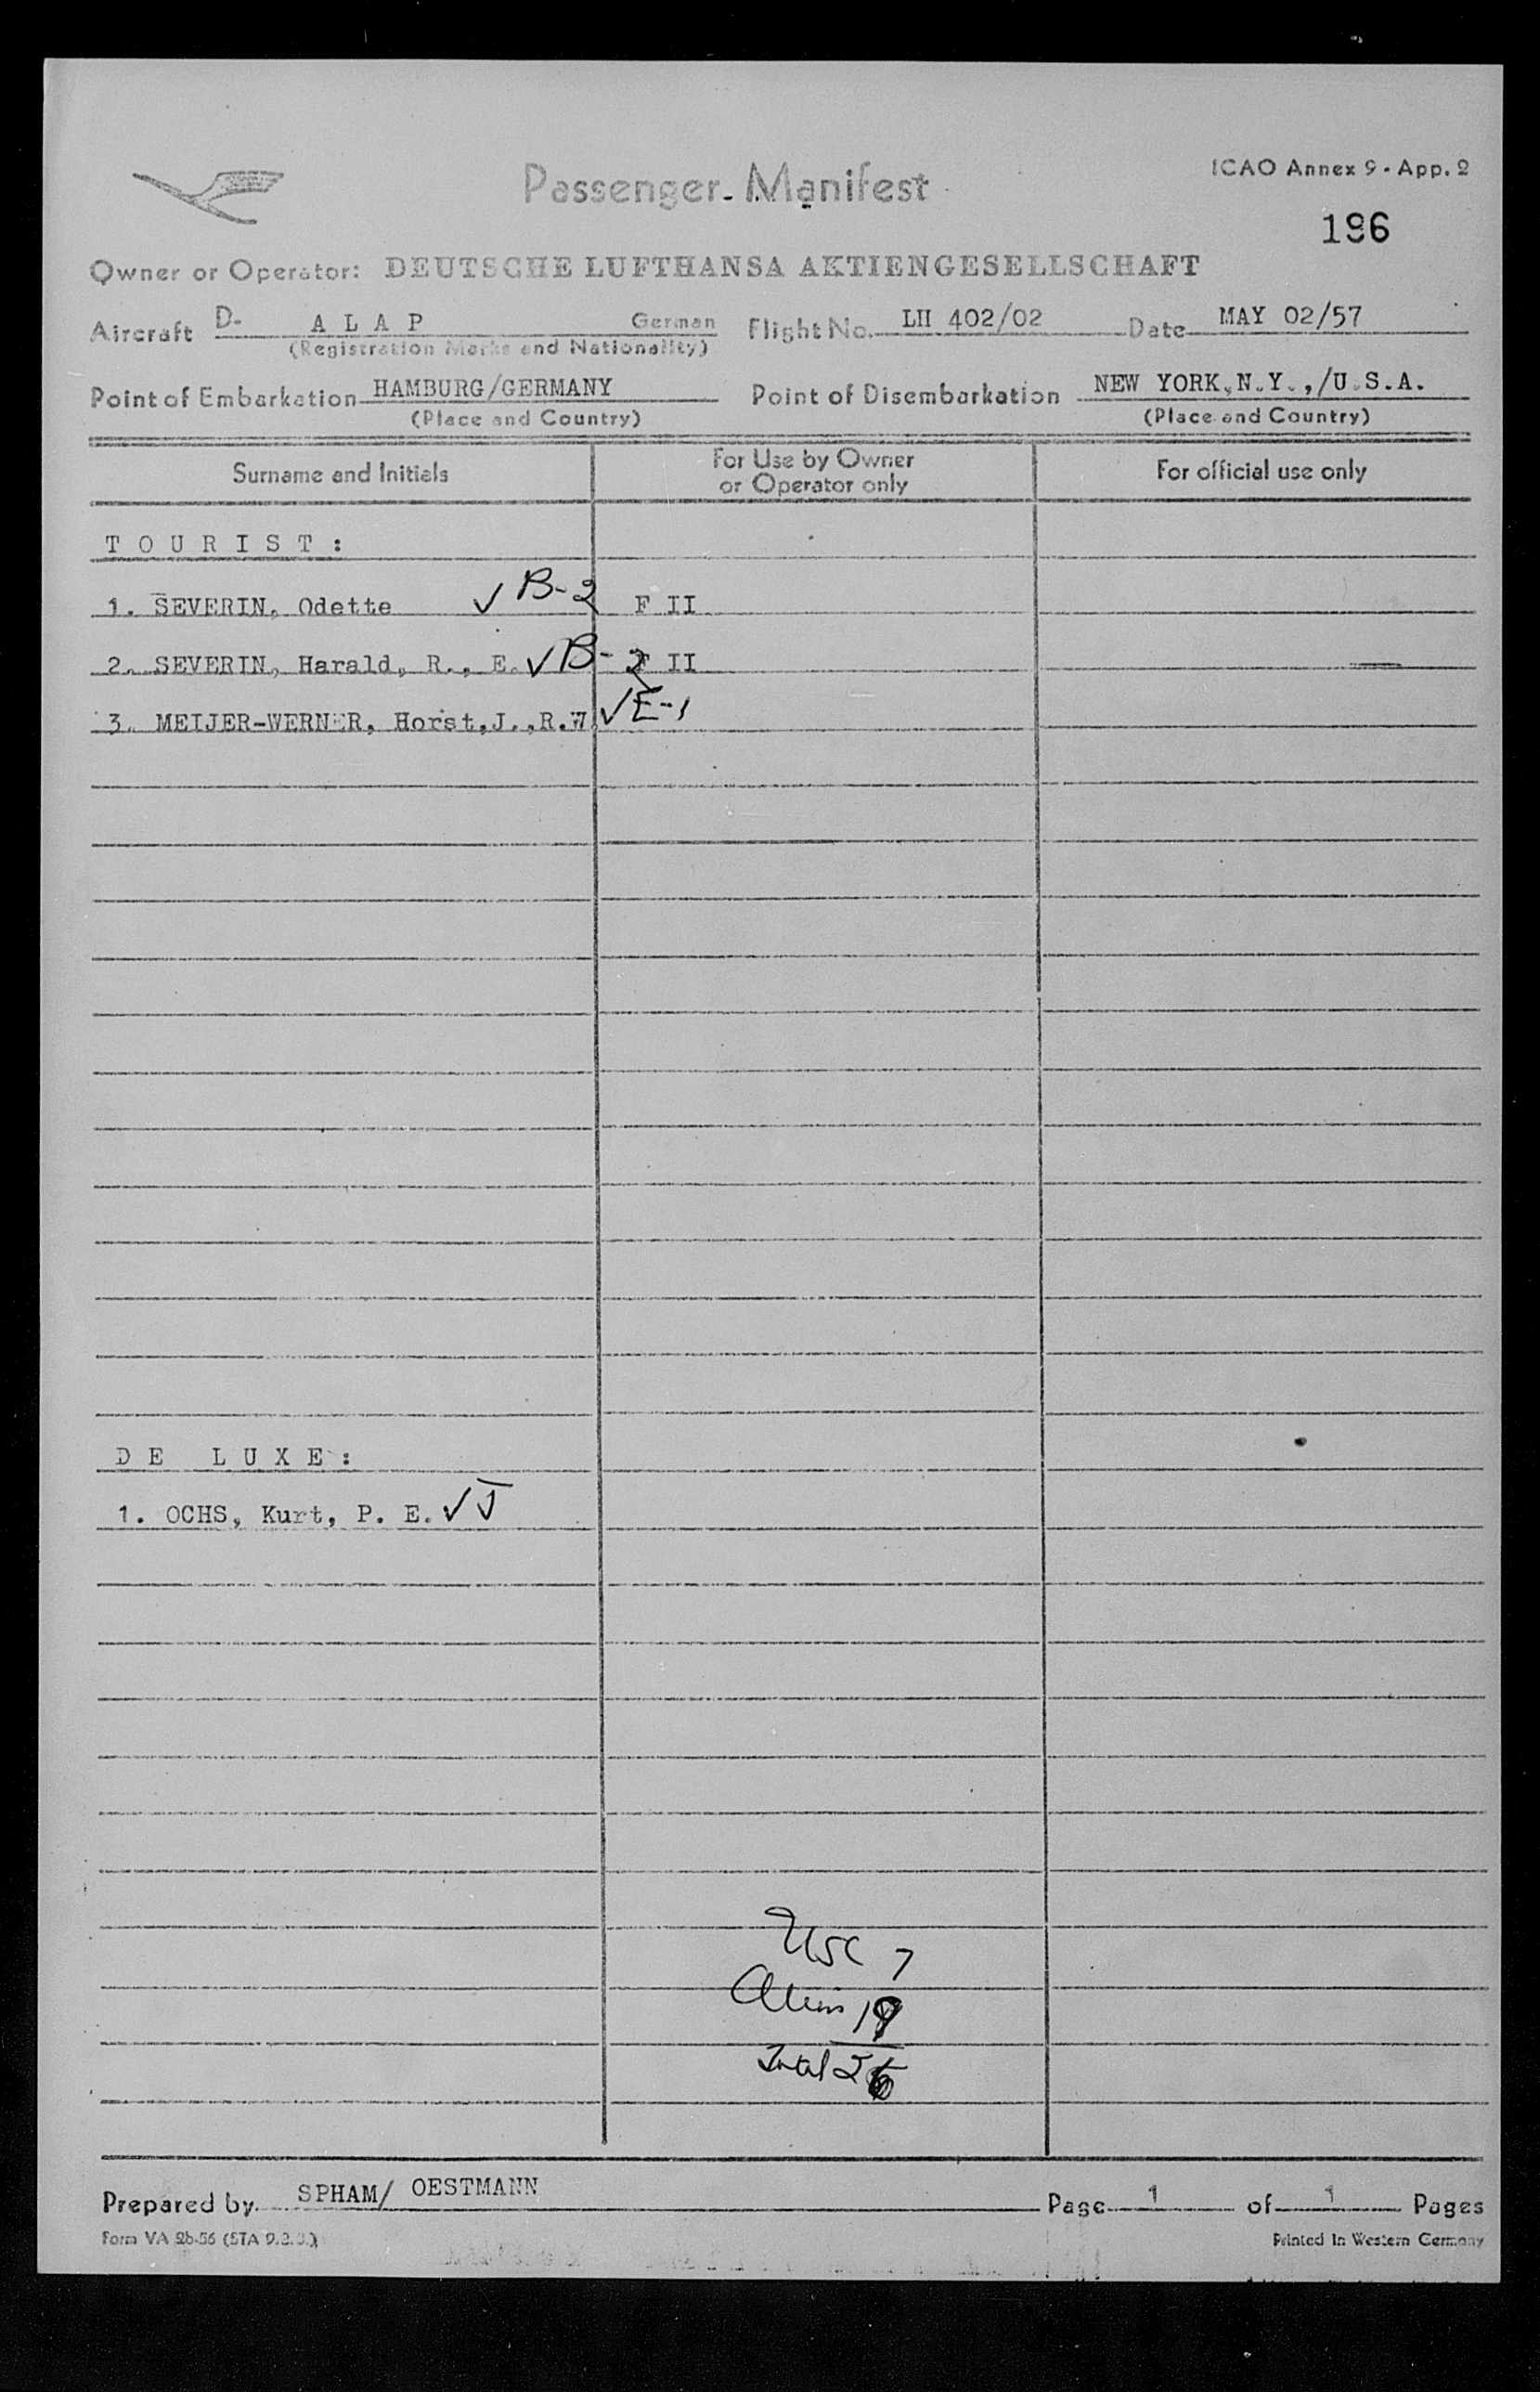 Passenger Manifest
ICAO Annex 9 - App. 2
196
Owner or Operator: DEUTSCHE LUFTHANSA AKTIENGESELLSCHAFT
Aircraft D- A L A P German Flight No. LH 402/02 Date MAY 02/57
(Registration Marks and Nationality)
Point of Embarkation HAMBURG/GERMANY Point of Disembarkation NEW YORK,N.Y.,/U.S.A.
(Place and Country) (Place and Country)
Surname and Initials For Use by Owner or Operator only For official use only
T O U R I S T :
1. SEVERIN, Odette ✓ B-2 F II
2. SEVERIN, Harald, R., E. ✓ B-2 II
3. MEIJER-WERNER, Horst,J.,R.W. ✓ E-1
D E L U X E :
1. OCHS, Kurt, P. E. ✓ J
USC 7
Aliens 19
Total 26
Prepared by SPHAM/ OESTMANN Page 1 of 1 Pages
Form VA 2b-56 Printed in Western Germany